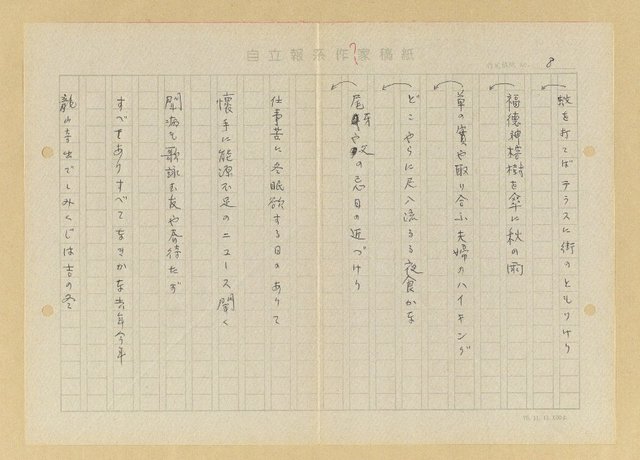 自立報系作家稿紙
8
蚊を打てばテラスに街のともりけり
福徳神榕樹を傘に秋の雨
草の實や取り合ふ夫婦のハイキング
どこやらに尺八流るる夜食かな
尾牙や父の忌日の近づけり
仕事苦に冬眠欲する日のありて
懐手に能源不足のニュース聞く
闘病も歌詠む友や春待たず
すべてありすべてなきかな去年今年
龍山寺出でしみくじは吉の冬